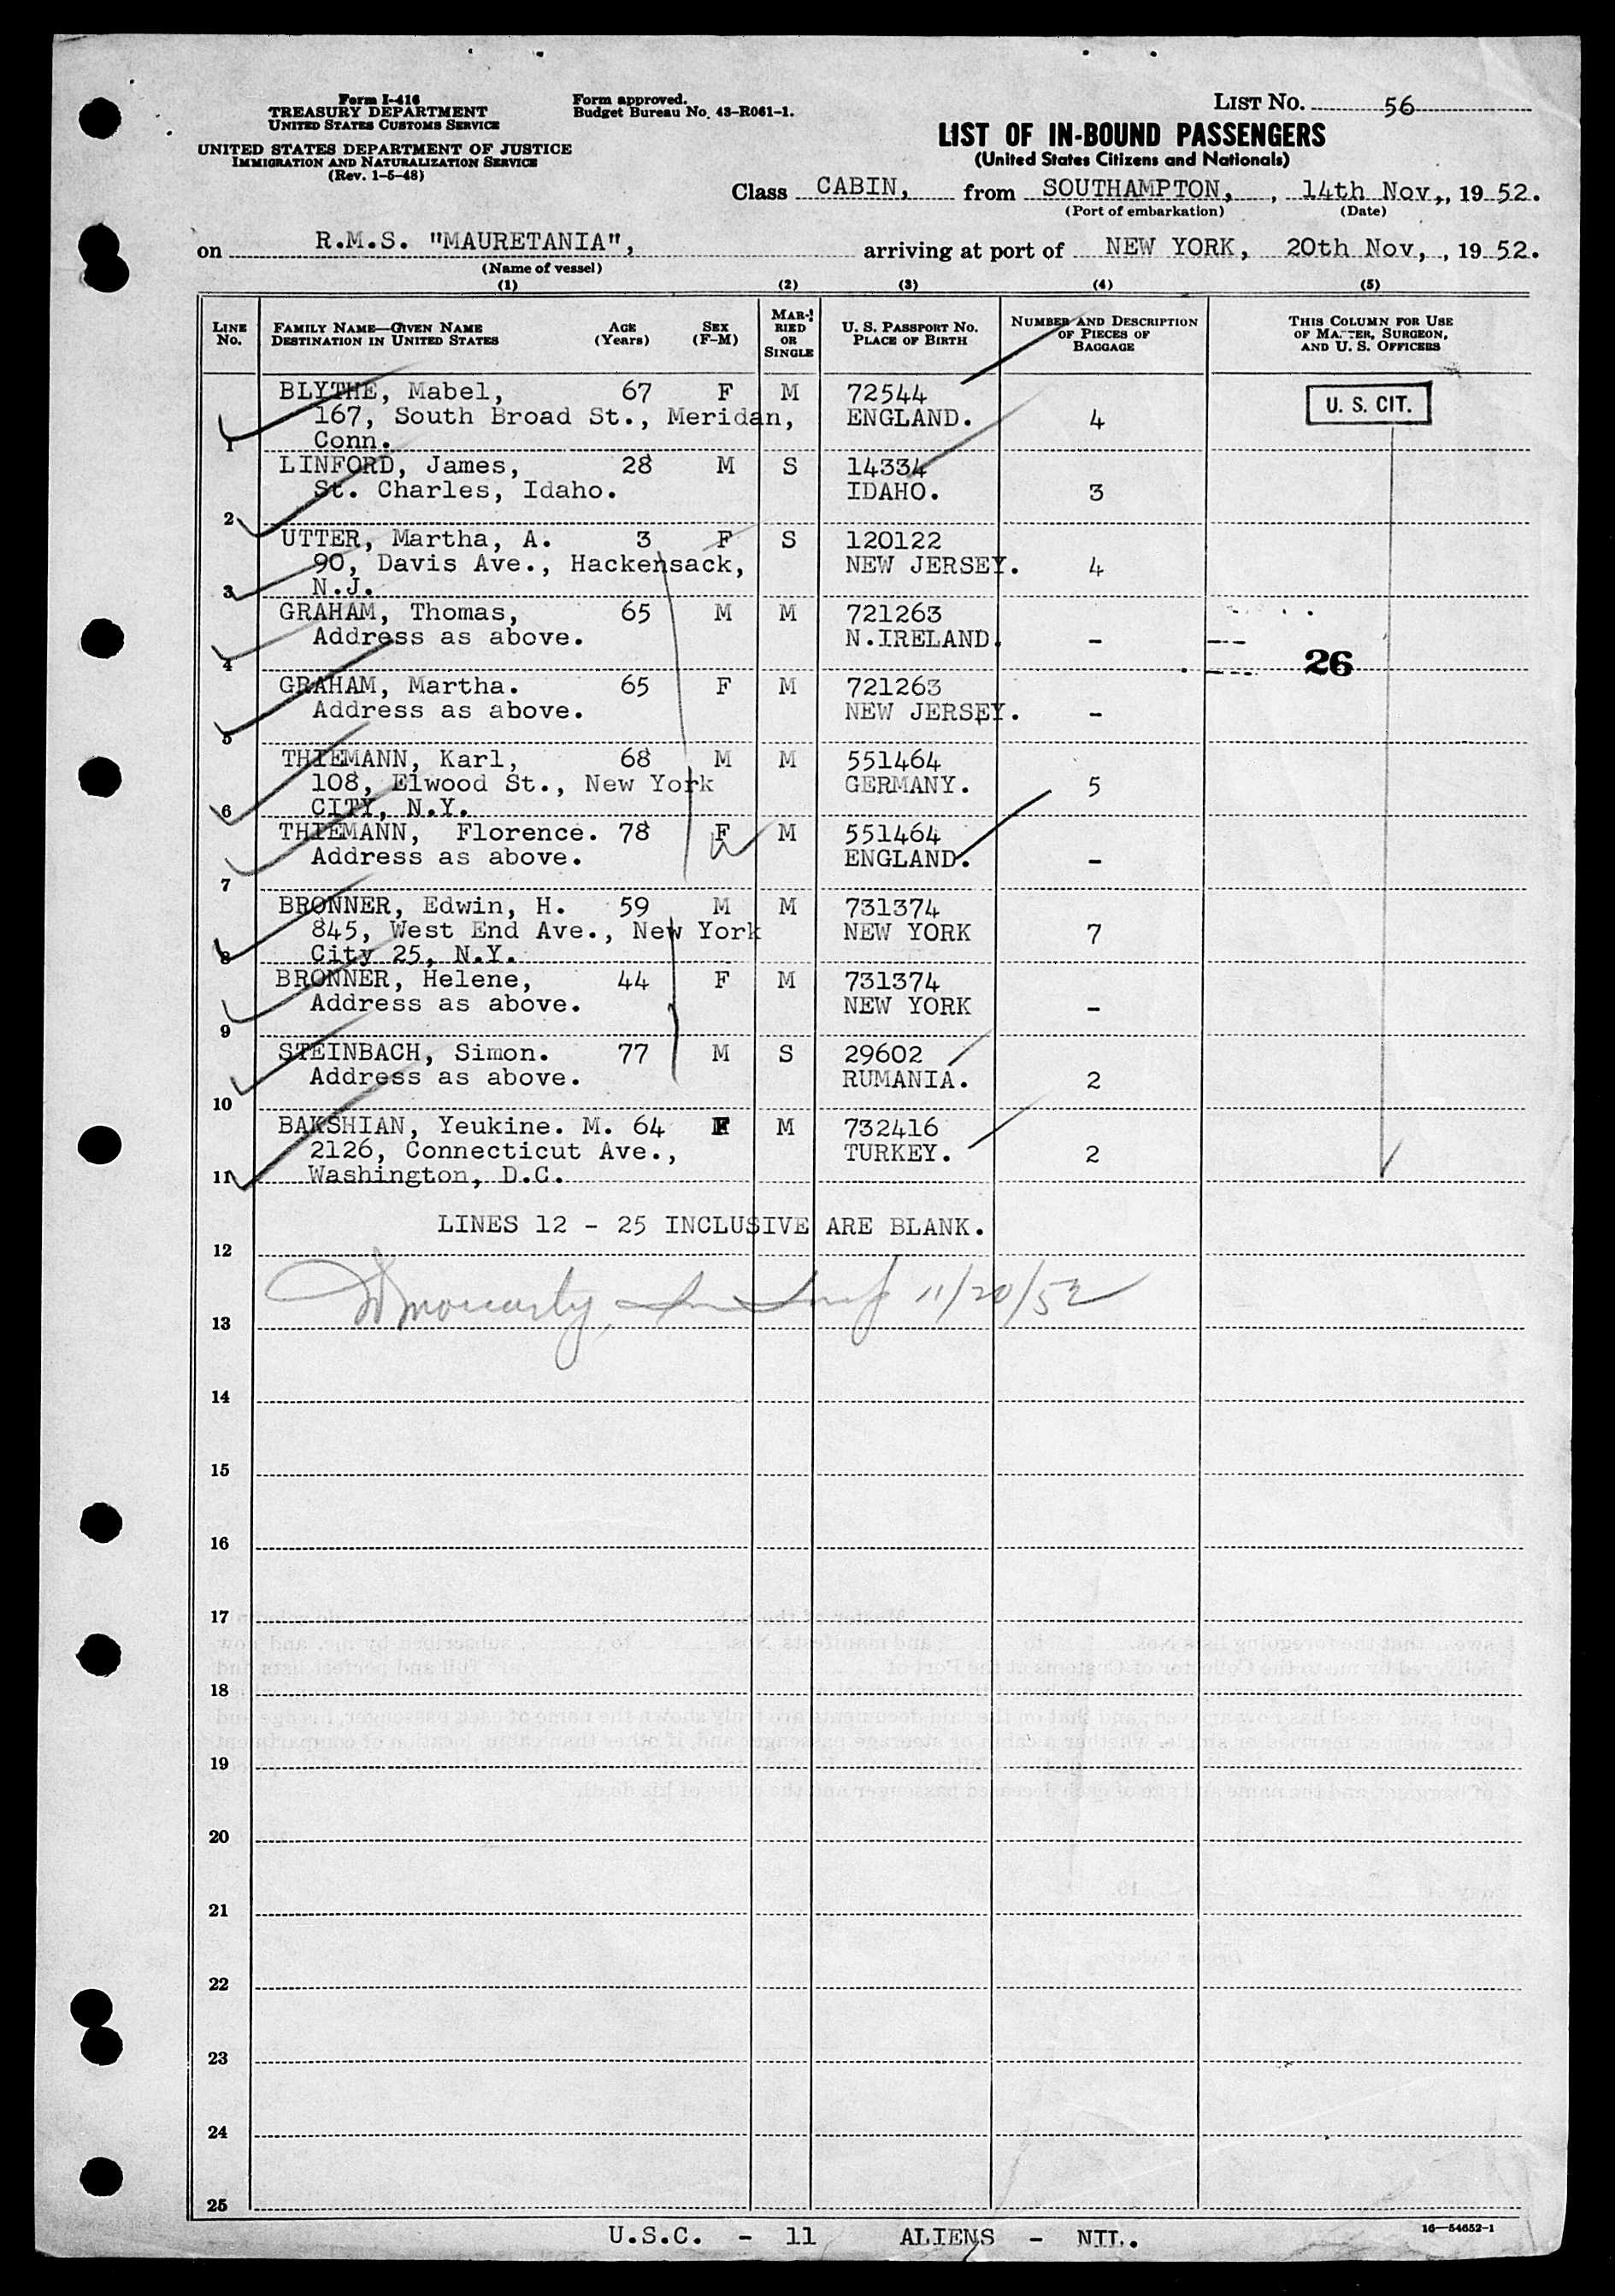 Form I-416
TREASURY DEPARTMENT
UNITED STATES CUSTOMS SERVICE
UNITED STATES DEPARTMENT OF JUSTICE
IMMIGRATION AND NATURALIZATION SERVICE
(Rev. 1-5-48)
Form approved.
Budget Bureau No. 43-R061-1.
LIST NO. 56
LIST OF IN-BOUND PASSENGERS
(United States Citizens and Nationals)
Class CABIN, from SOUTHAMPTON, , 14th Nov., 1952.
(Port of embarkation) (Date)
on R.M.S. "MAURETANIA", arriving at port of NEW YORK, 20th Nov, , 1952.
(Name of vessel)
(1) (2) (3) (4) (5)
LINE No. FAMILY NAME—GIVEN NAME DESTINATION IN UNITED STATES AGE (Years) SEX (F-M) MARRIED OR SINGLE U. S. PASSPORT NO. PLACE OF BIRTH NUMBER AND DESCRIPTION OF PIECES OF BAGGAGE THIS COLUMN FOR USE OF MASTER, SURGEON, AND U. S. OFFICERS
BLYTHE, Mabel, 67 F M 72544 U. S. CIT.
167, South Broad St., Meridan, ENGLAND. 4
1 Conn.
LINFORD, James, 28 M S 14334
St. Charles, Idaho. IDAHO. 3
2
UTTER, Martha, A. 3 F S 120122
90, Davis Ave., Hackensack, NEW JERSEY. 4
3 N.J.
GRAHAM, Thomas, 65 M M 721263
Address as above. N.IRELAND. -
4 26
GRAHAM, Martha. 65 F M 721263
Address as above. NEW JERSEY. -
5
THIEMANN, Karl, 68 M M 551464
108, Elwood St., New York GERMANY. 5
6 CITY, N.Y.
THIEMANN, Florence. 78 F M 551464
Address as above. ENGLAND. -
7
BRONNER, Edwin, H. 59 M M 731374
845, West End Ave., New York NEW YORK 7
8 City 25, N.Y.
BRONNER, Helene, 44 F M 731374
Address as above. NEW YORK -
9
STEINBACH, Simon. 77 M S 29602
Address as above. RUMANIA. 2
10
BAKSHIAN, Yeukine. M. 64 F M 732416
2126, Connecticut Ave., TURKEY. 2
11 Washington, D.C.
LINES 12 - 25 INCLUSIVE ARE BLANK.
12
11/20/52
13
14
15
16
17
18
19
20
21
22
23
24
25
U.S.C. - 11 ALIENS - NIL.
16—54652-1